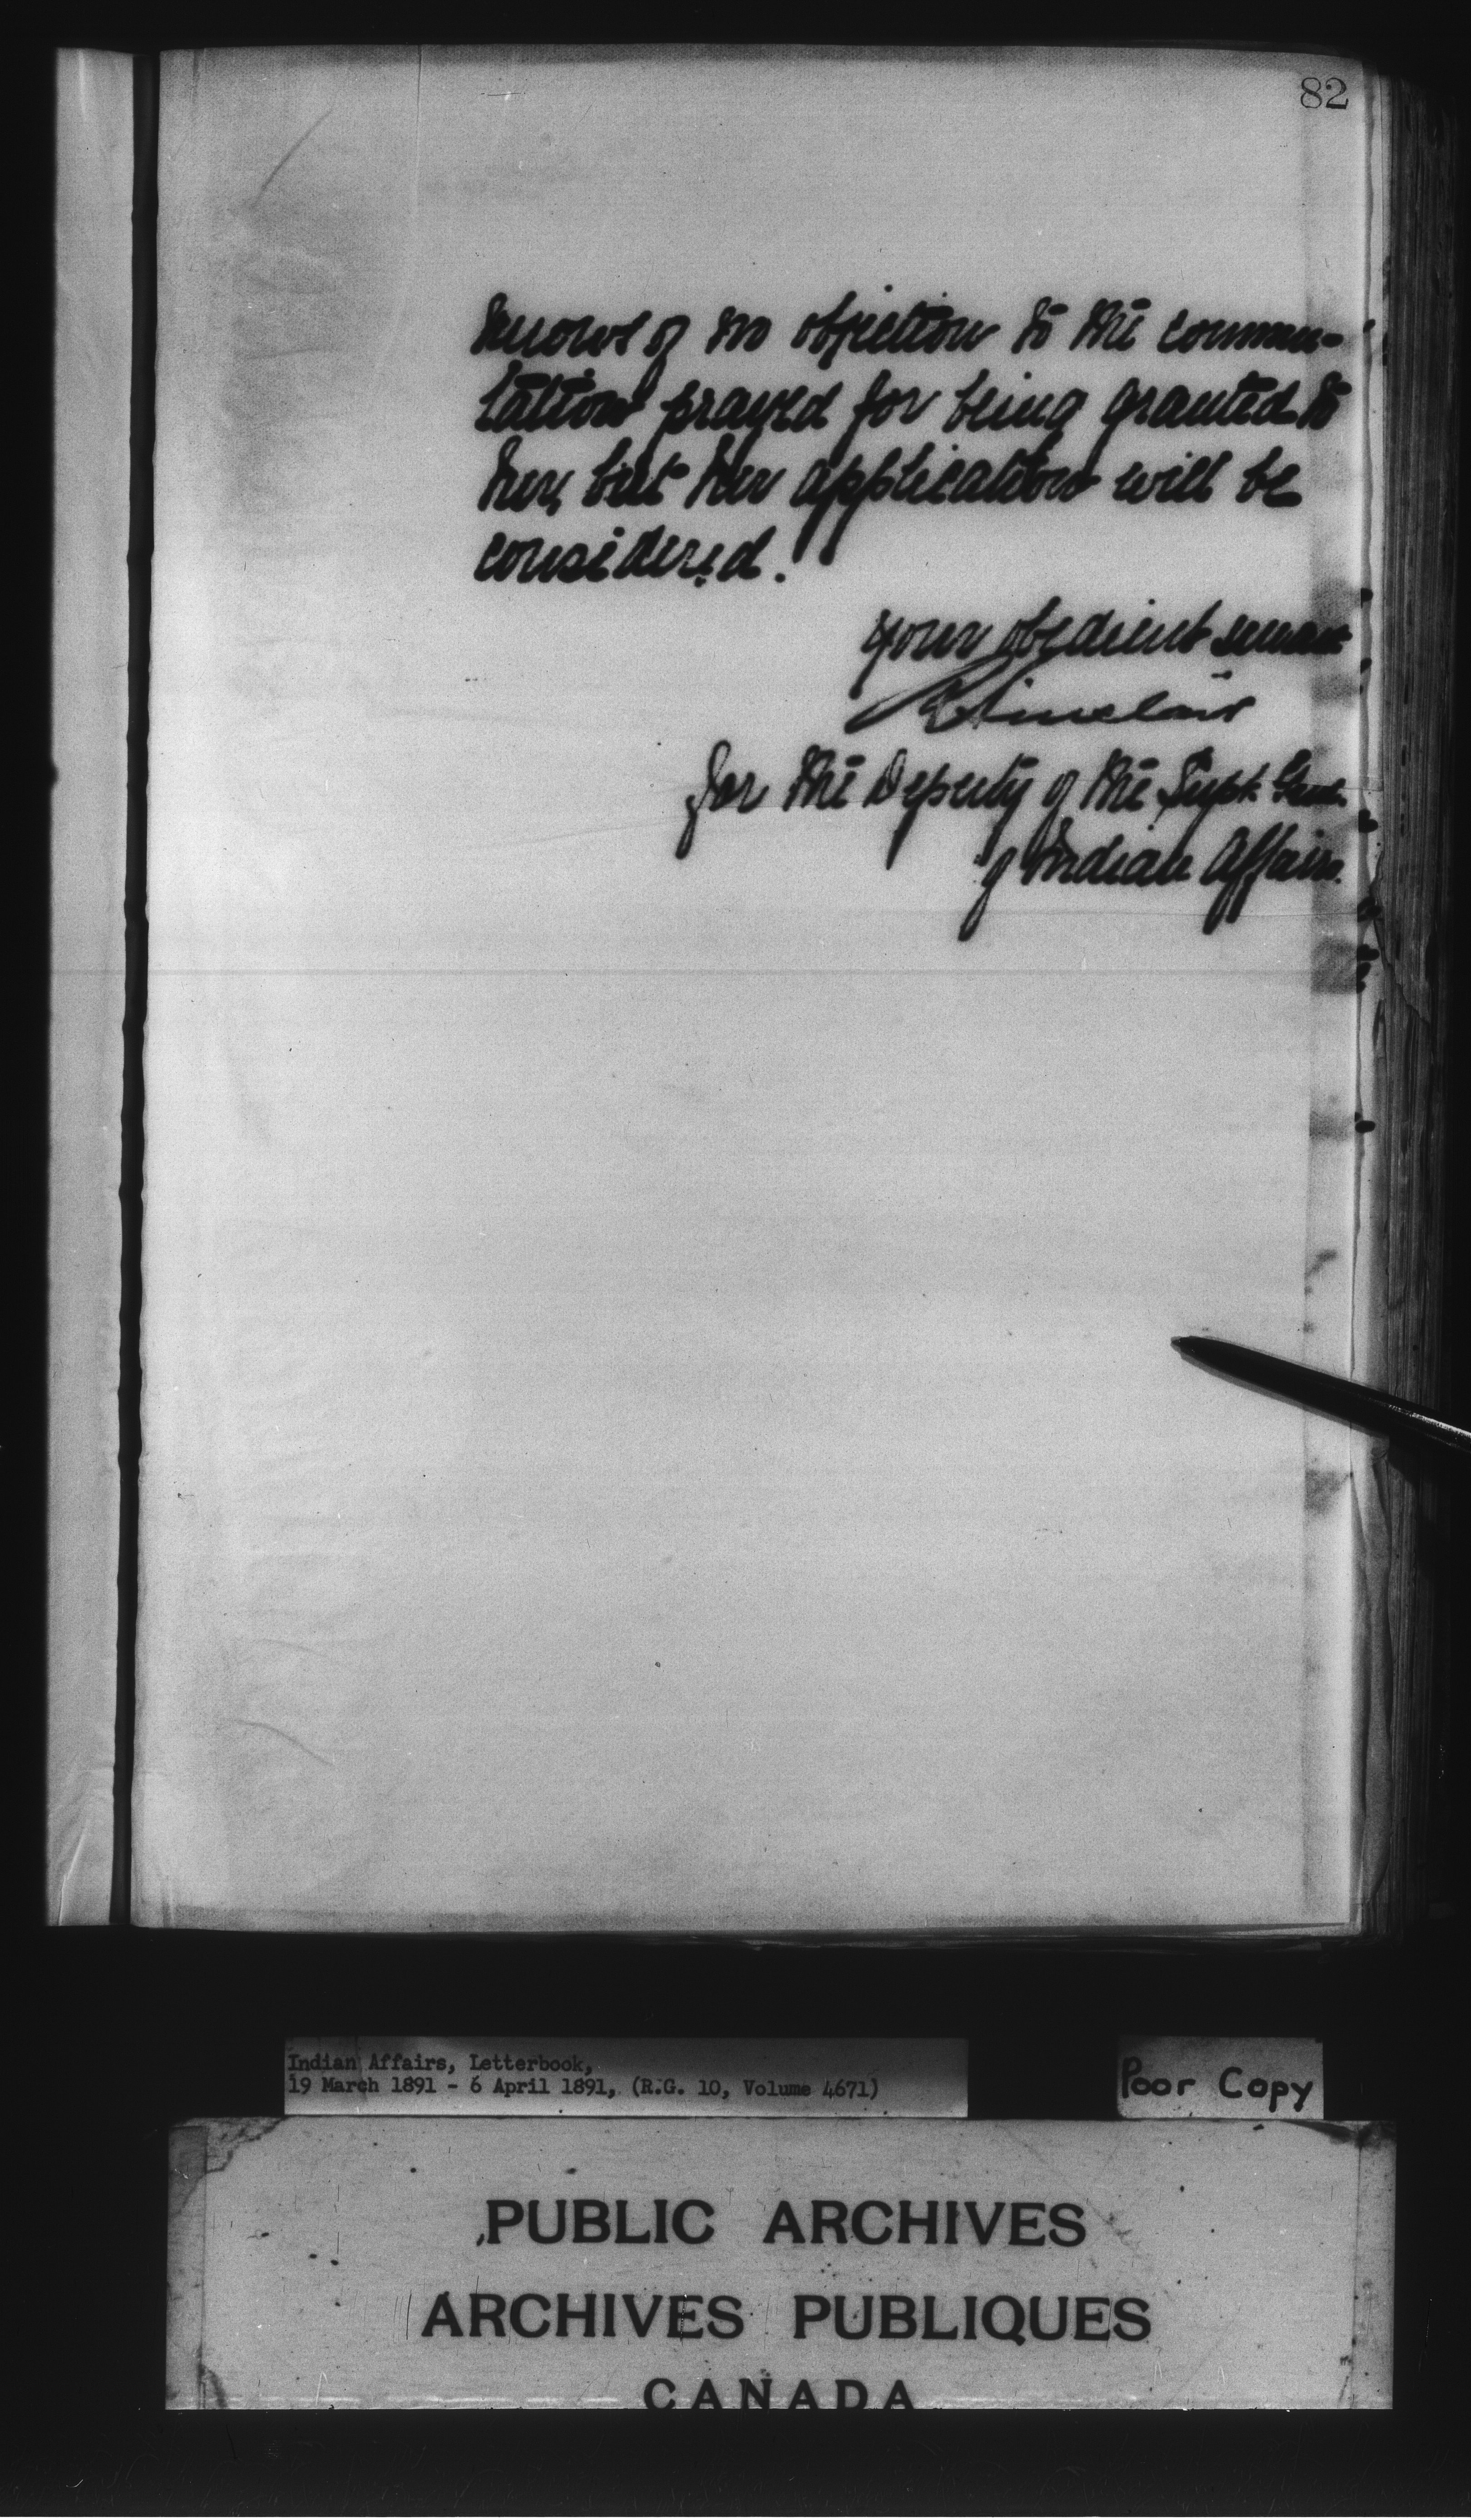 82
knows of no objection to the commu-
tation prayed for being granted to
her, but her application will be
considered.
your obedient servant
R Sinclair
for the Deputy of the Supt. Genl.
of Indian Affairs.
Indian Affairs, Letterbook,
19 March 1891 - 6 April 1891, (R.G. 10, Volume 4671)
Poor Copy
PUBLIC ARCHIVES
ARCHIVES PUBLIQUES
CANADA